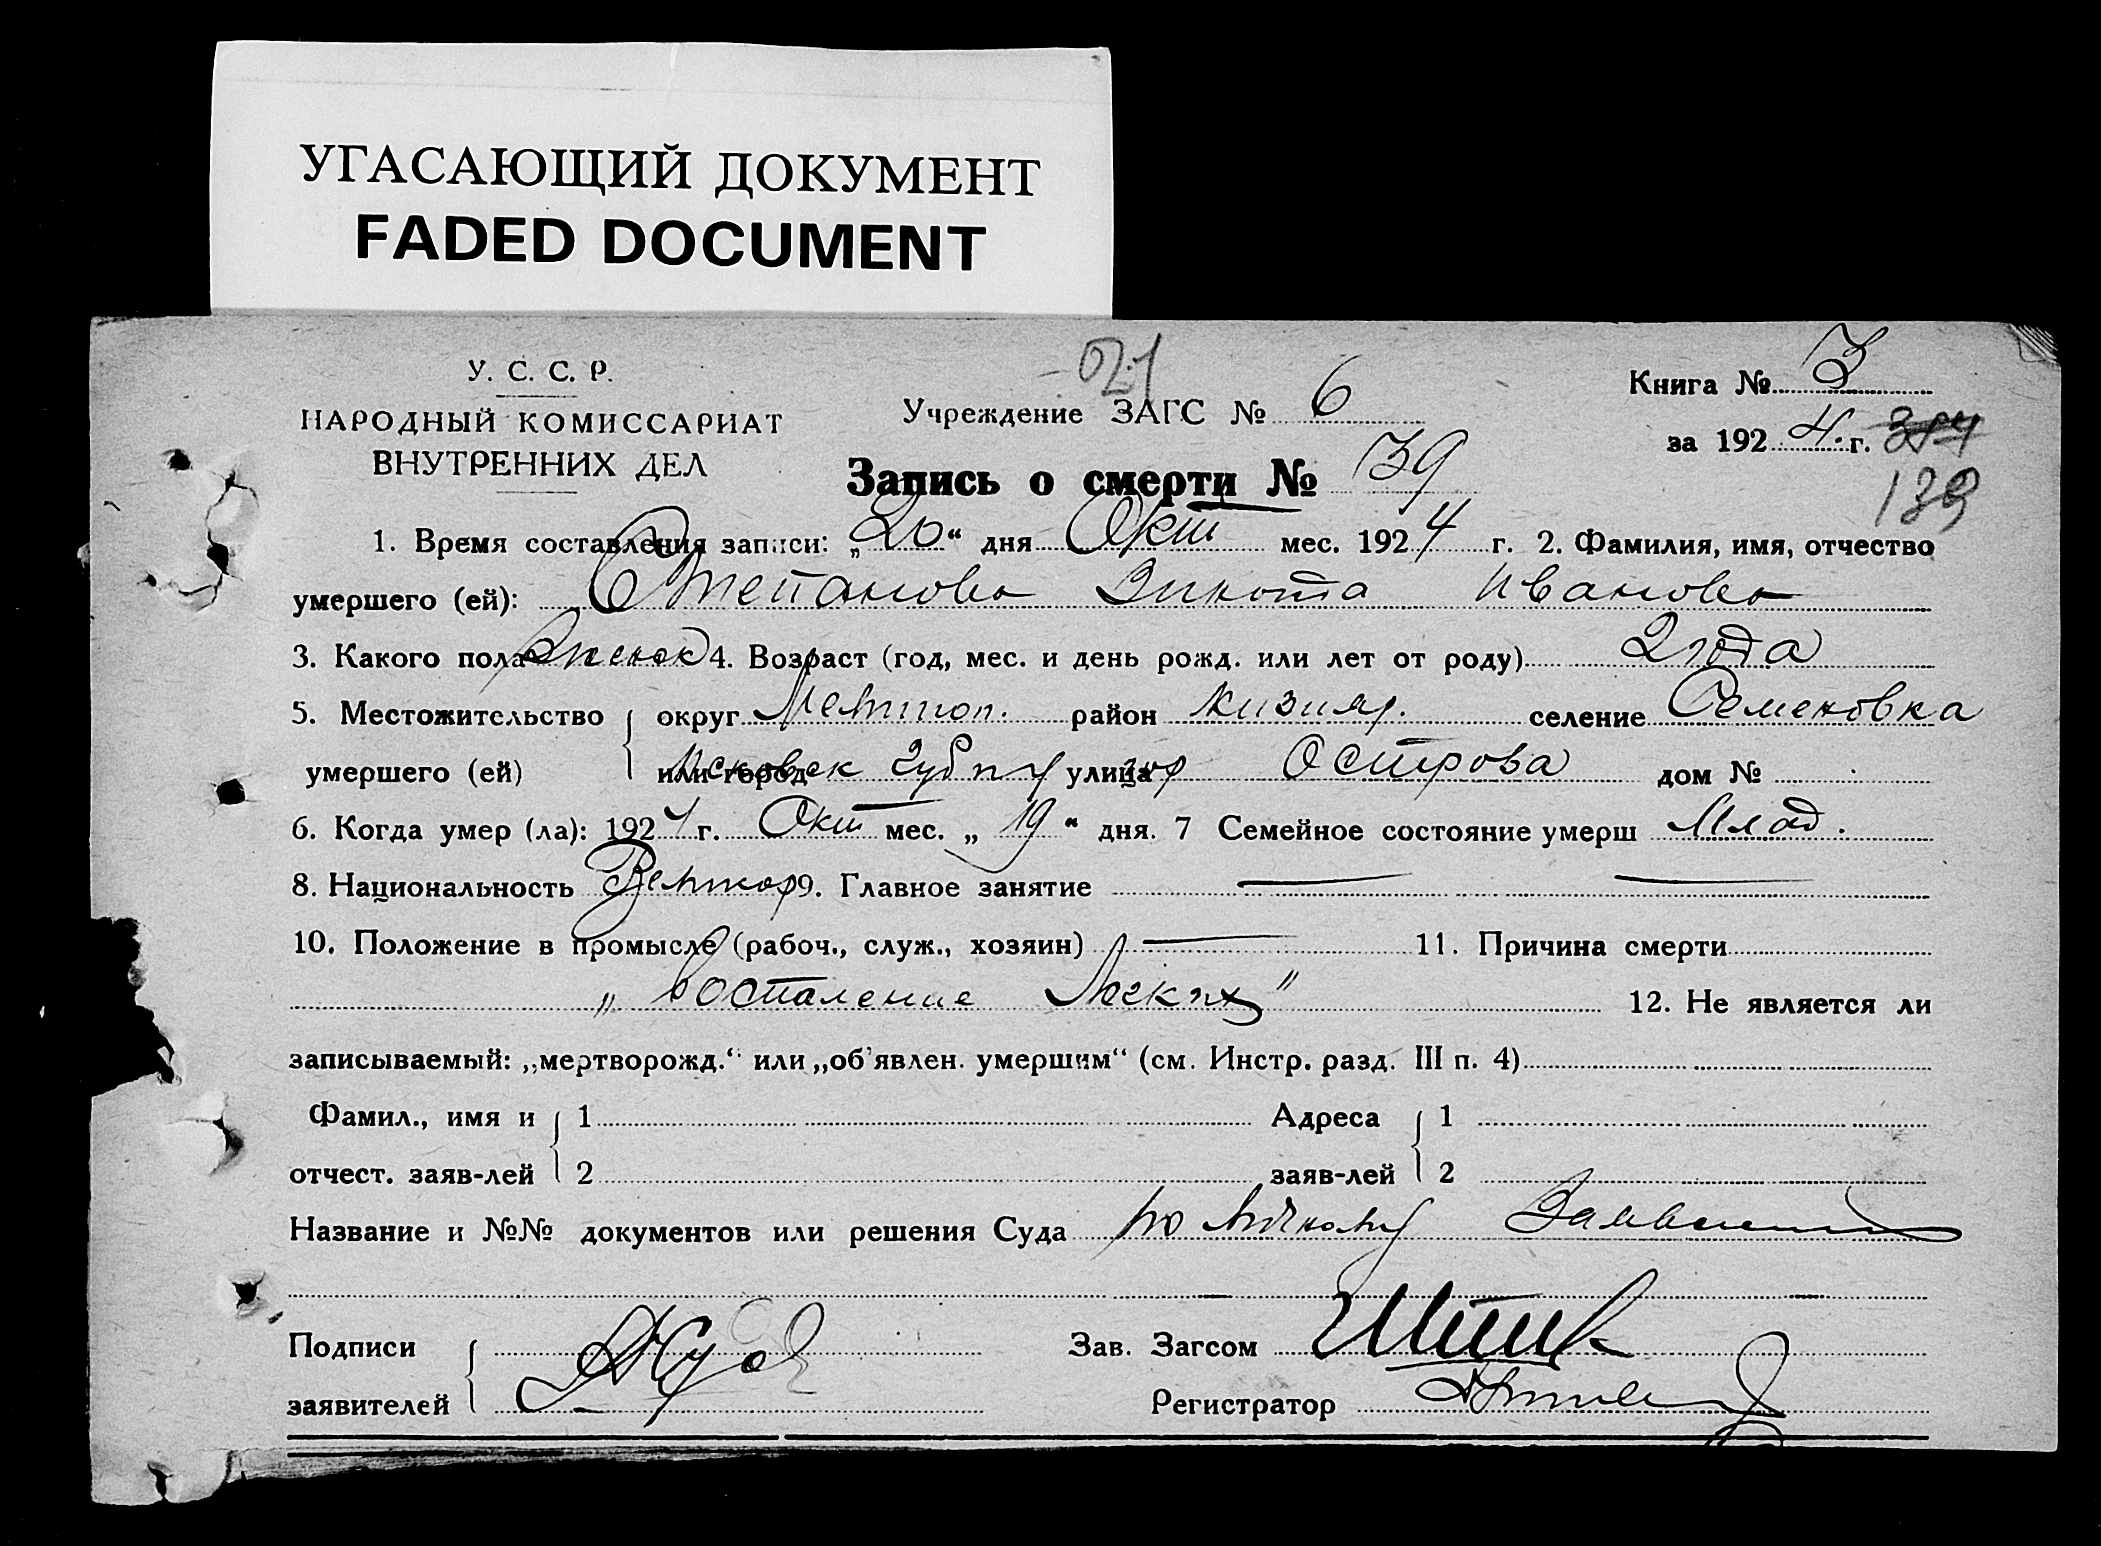 УГАСАЮЩИЙ ДОКУМЕНТ
FADED DOCUMENT
У. С. С. Р.
НАРОДНЫЙ КОМИССАРИАТ
ВНУТРЕННИХ ДЕЛ
Учреждение ЗАГС № 6
Книга № 3
за 1924 г.
139
Запись о смерти № 139
1. Время составления записи: „20“ дня Окт мес. 1924 г. 2. Фамилия, имя, отчество
умершего (ей): Степанова Иванова
3. Какого пола женск 4. Возраст (год, мес. и день рожд. или лет от роду) 2 года
5. Местожительство округ Мелитоп. район Кизияр. селение Семеновка
умершего (ей) или город улица Острова дом №
6. Когда умер (ла): 1924 г. Окт мес. „19“ дня. 7 Семейное состояние умерш Млад.
8. Национальность Великор 9. Главное занятие —
10. Положение в промысле (рабоч., служ., хозяин) — 11. Причина смерти
„Воспаление Легких“ 12. Не является ли
записываемый: „мертворожд.“ или „об'явлен. умершим“ (см. Инстр. разд. III п. 4)
Фамил., имя и 1 Адреса 1
отчест. заяв-лей 2 заяв-лей 2
Название и №№ документов или решения Суда по личному
Подписи Зав. Загсом
заявителей Регистратор